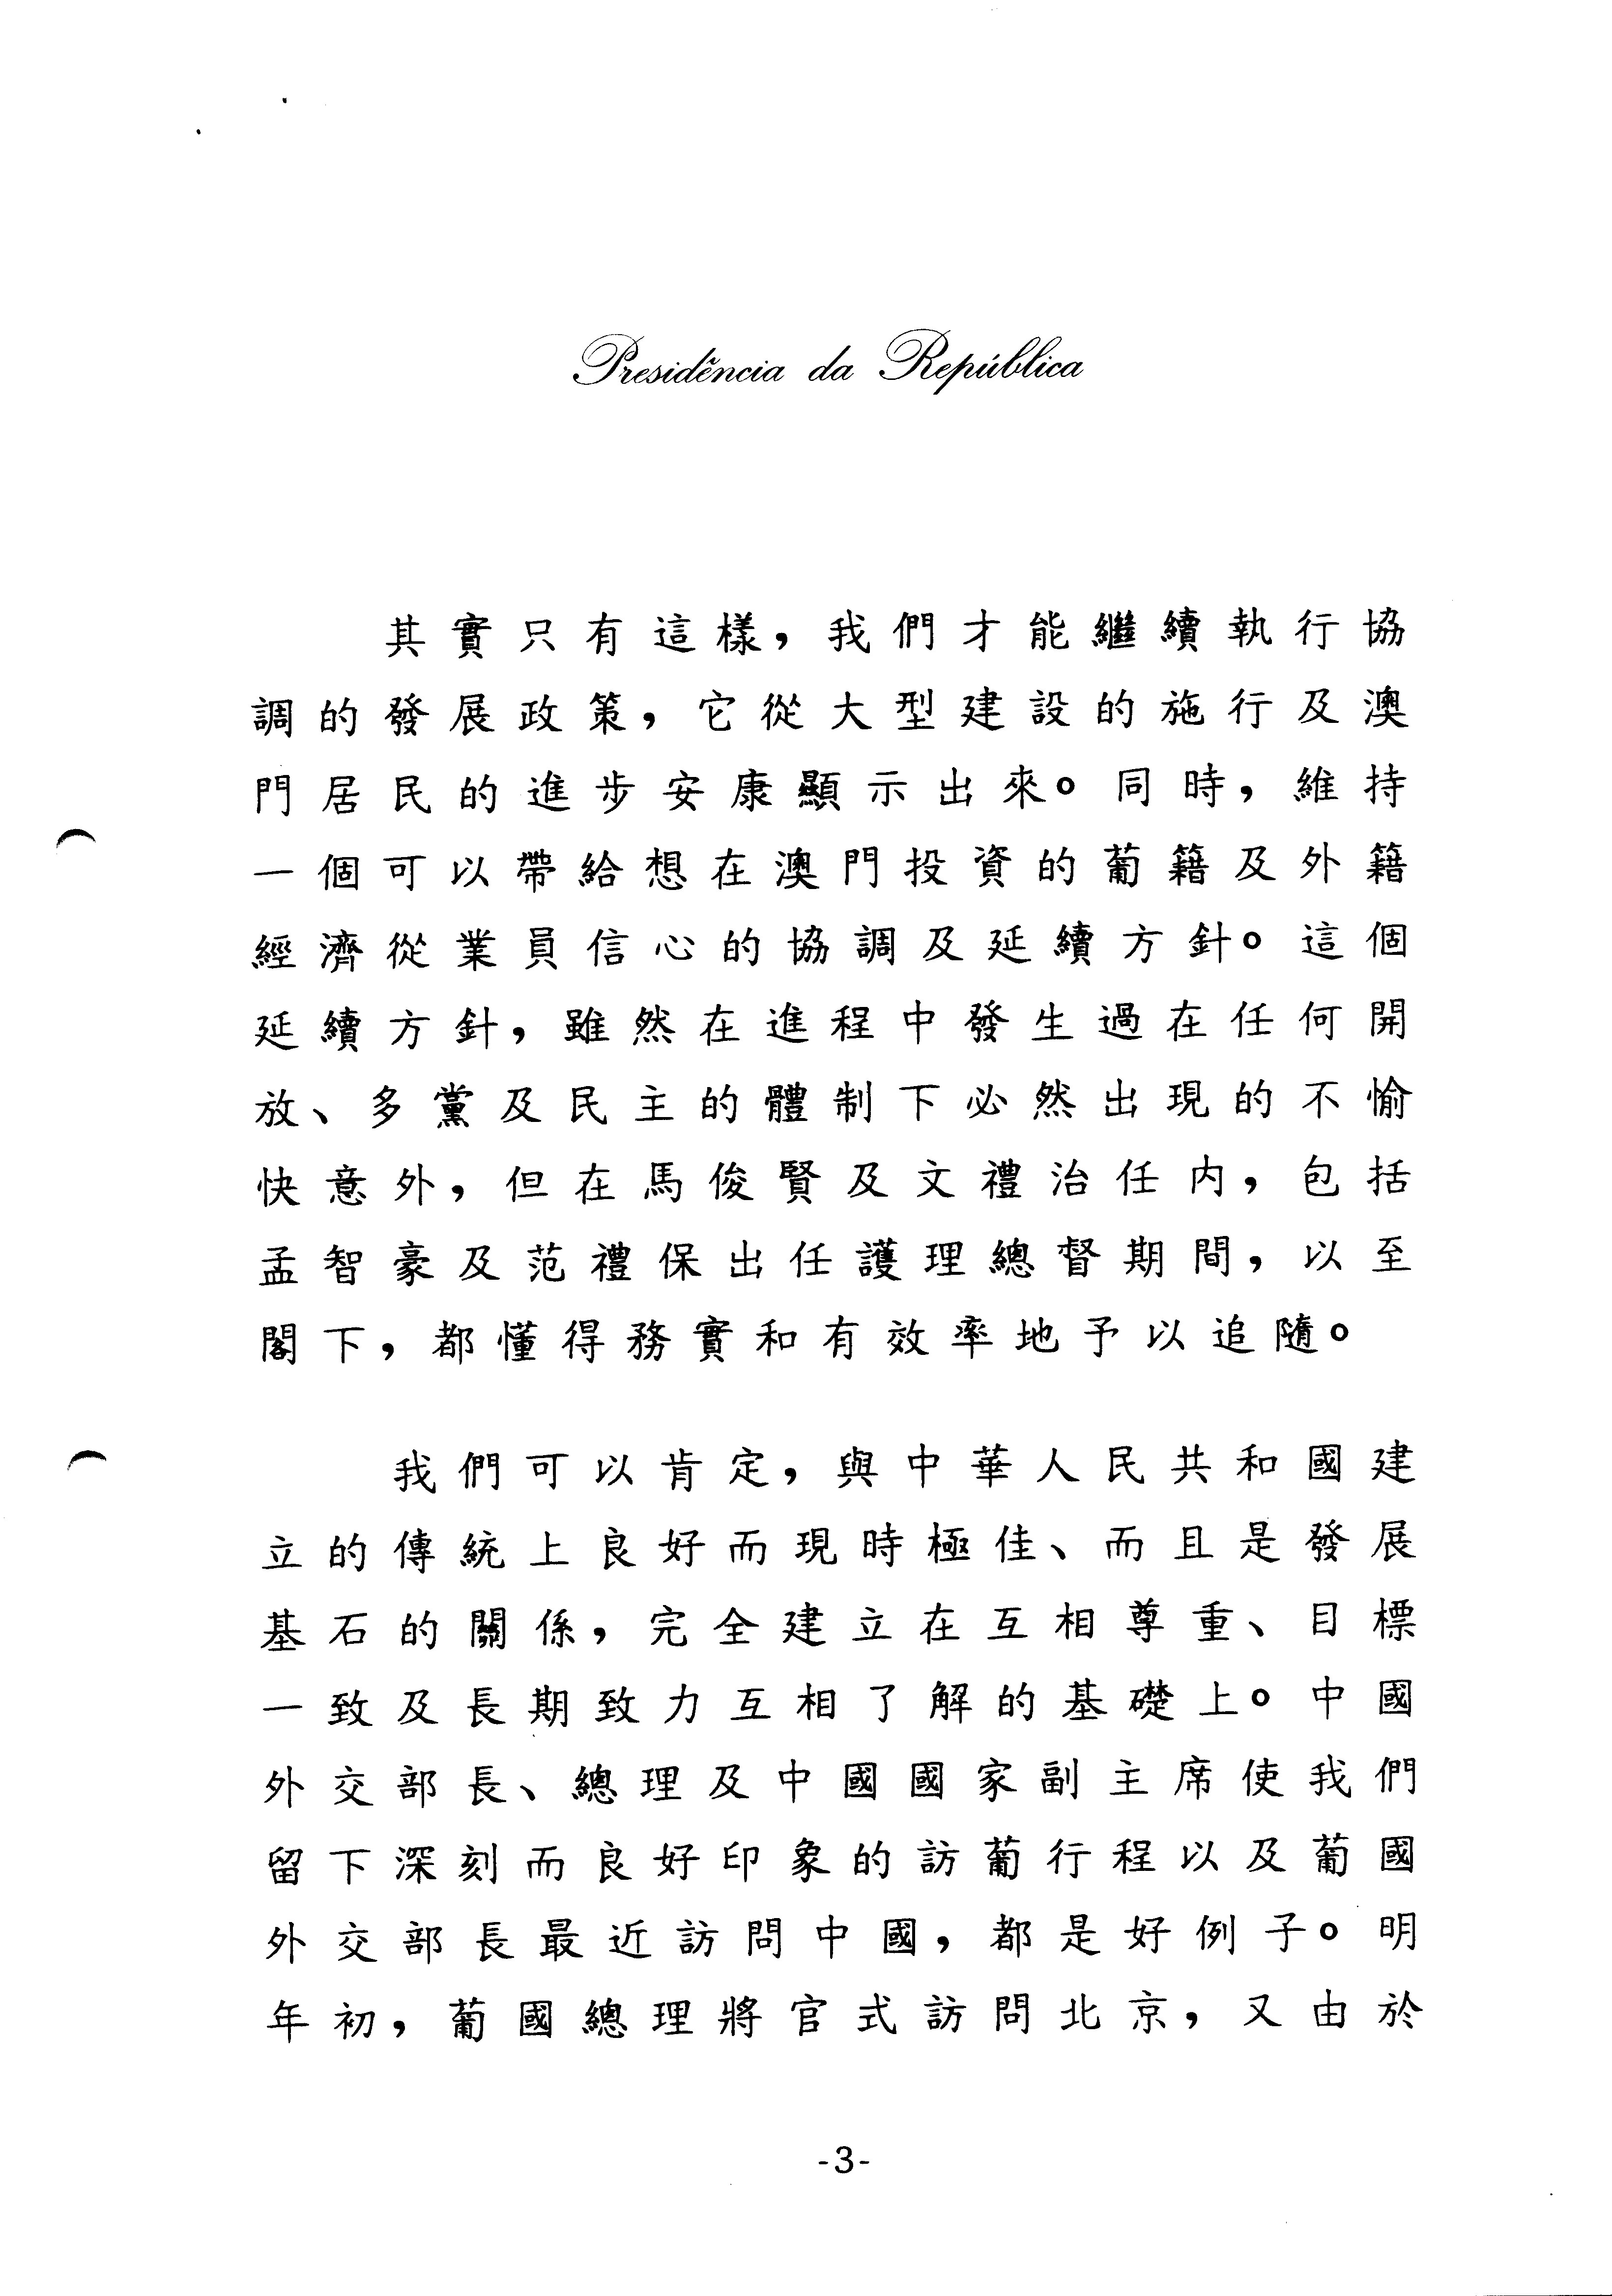 Presidência da República
其實只有這樣，我們才能繼續執行協
調的發展政策，它從大型建設的施行及澳
門居民的進步安康顯示出來。同時，維持
一個可以帶給想在澳門投資的葡籍及外籍
經濟從業員信心的協調及延續方針。這個
延續方針，雖然在進程中發生過在任何開
放、多黨及民主的體制下必然出現的不愉
快意外，但在馬俊賢及文禮治任内，包括
孟智豪及范禮保出任護理總督期間，以至
閣下，都懂得務實和有效率地予以追隨。
我們可以肯定，與中華人民共和國建
立的傳統上良好而現時極佳、而且是發展
基石的關係，完全建立在互相尊重、目標
一致及長期致力互相了解的基礎上。中國
外交部長、總理及中國國家副主席使我們
留下深刻而良好印象的訪葡行程以及葡國
外交部長最近訪問中國，都是好例子。明
年初，葡國總理將官式訪問北京，又由於
-3-